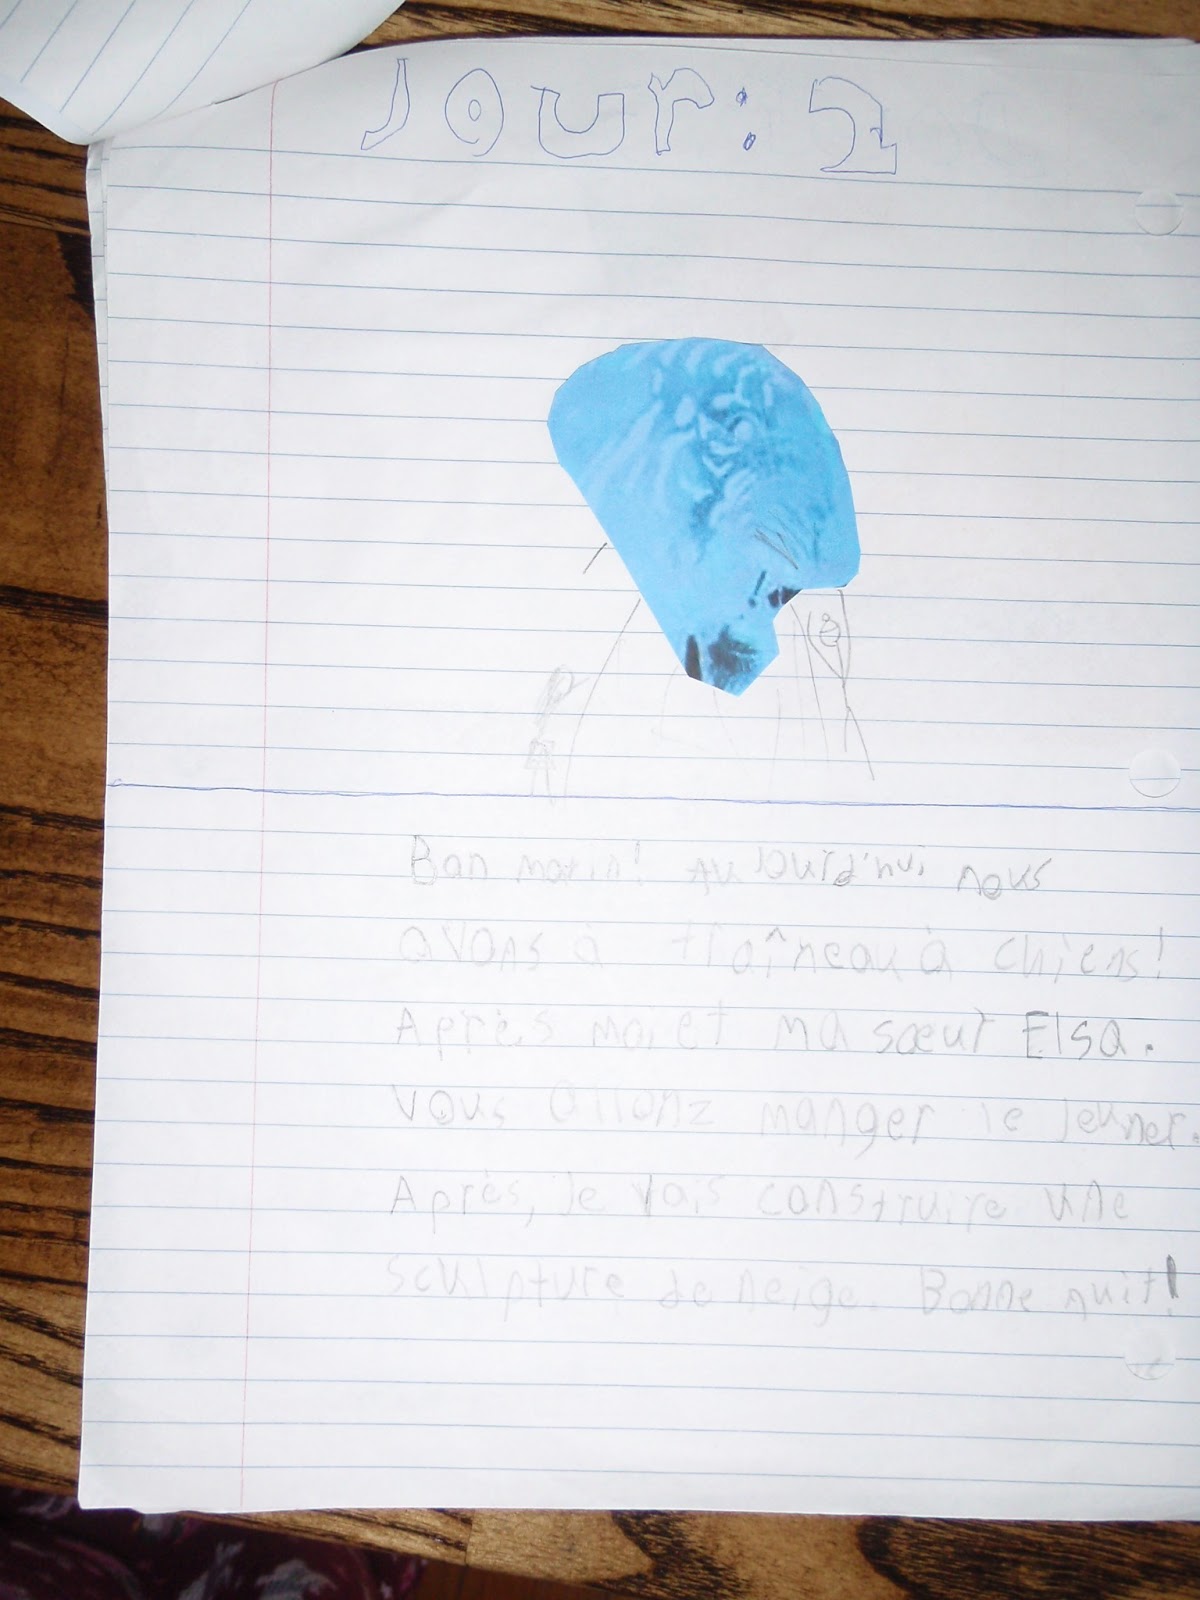 Jour: 2
Bon matin! Aujourd'hui nous
avons à traîneau à chiens!
Après moi et ma sœur Elsa.
Vous allonz manger le jeuner.
Après, je vais construire une
sculpture de neige. Bonne nuit!